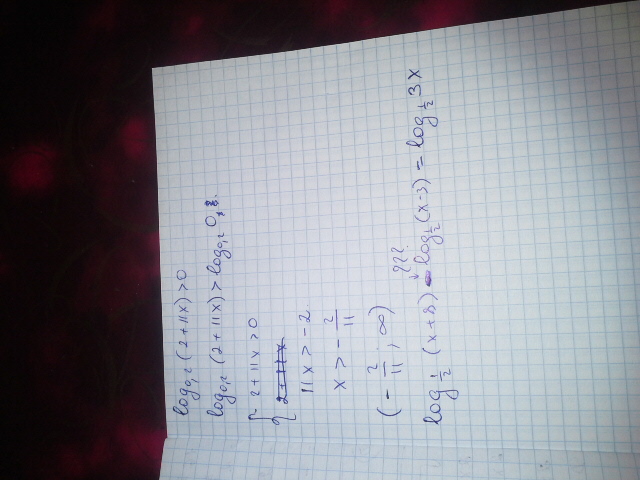 log₀,₂ (2+11x)>0
log₀,₂ (2+11x)>log₀,₂ 0,
{ 2+11x>0
2+11x
11x>-2
x>-2/11
(-2/11; ∞)
???
log½ (x+8)-log½(x-3)=log½ 3x